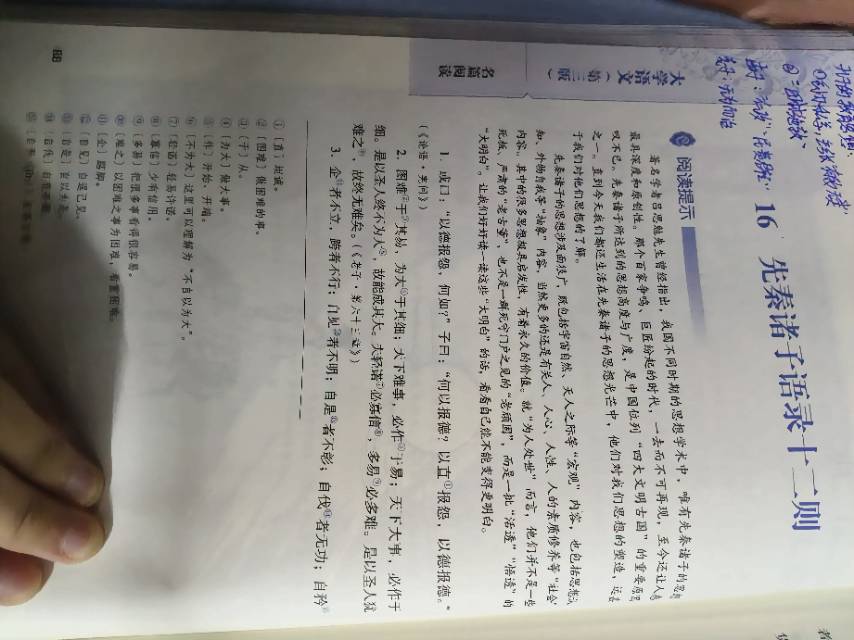 大学语文（第三版）
名篇阅读
16 先秦诸子语录十二则
阅读提示
著名学者吕思勉先生曾经指出，我国不同时期的思想学术中，唯有先秦诸子的思
最具深度和原创性。那个百家争鸣、巨匠纷起的时代，一去而不可再现，至今还让人
叹不已。先秦诸子所达到的思想高度与广度，是中国位列“四大文明古国”的重要原
之一。直到今天我们都还生活在先秦诸子的思想光芒中，他们对我们思想的塑造，远
于我们对他们思想的了解。
先秦诸子的思想涉及面很广，既包括宇宙自然、天人之际等“宏观”内容，也包括思想
知、外物自我等“抽象”内容，当然更多的还是有关人、人心、人性、人的素质修养等“社会
内容。其中的很多思想极具启发性，有着永久的价值。就“为人处世”而言，他们并不是一些
死板、严肃的“老古董”，也不是一群死守门户之见的“老顽固”，而是一批“活透”“悟透”的
“大明白”。让我们好好读一读这些“大明白”的话，看看自己能不能变得更明白。
1. 或曰：“以德报怨，何如？”子曰：“何以报德？以直①报怨，以德报德。”
（《论语·宪问》）
2. 图难②于③其易，为大④于其细；天下难事，必作⑤于易；天下大事，必作于
细。是以圣人终不为大⑥，故能成其大。夫轻诺⑦必寡信⑧，多易⑨必多难。是以圣人犹
难之⑩，故终无难矣。（《老子·第六十三章》）
3. 企⑪者不立，跨者不行；自见⑫者不明；自是⑬者不彰；自伐⑭者无功；自矜⑮
①〔直〕正直。
②〔图难〕做困难的事。
③〔于〕从。
④〔为大〕做大事。
⑤〔作〕开始、开端。
⑥〔不为大〕这里可以理解为“不自以为大”。
⑦〔轻诺〕轻易许诺。
⑧〔寡信〕少有信用。
⑨〔多易〕把很多事看得很容易。
⑩〔难之〕以困难之事为困难，看重困难。
⑪〔企〕踮脚。
⑫〔自见〕自逞己见。
⑬〔自是〕自以为是。
88